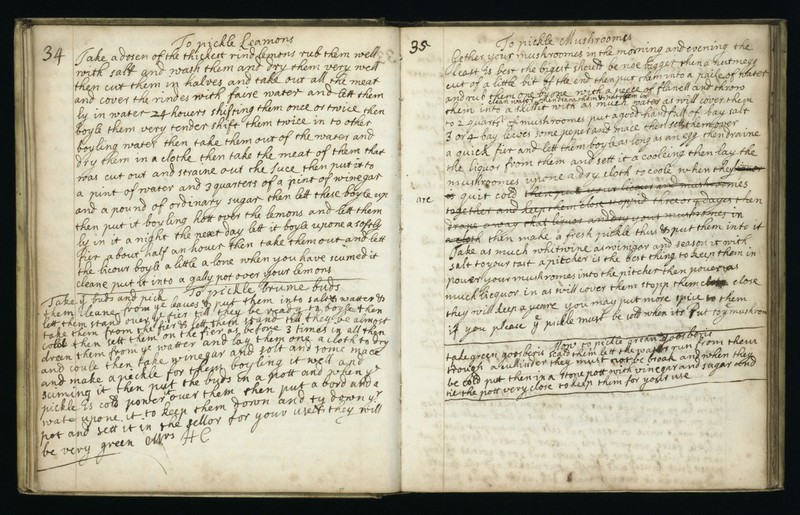 34
To pickle Leamons
Take a dosen of the thickest rind lemons rub them well
with salt and wash them and dry them very well
then cut them in halves and take out all the meat
and cover the rindes with faire water and lett them
ly in water 24 howers shifting them once or twice then
boyle them very tender shift them twice in to other
boyling water then take them out of the water and
dry them in a clothe then take the meat of them that
was cut out and straine out the Juce then put it to
a pint of water and 3 quarters of a pint of winegar
and a pound of ordinary sugar then lett these boyle up
then put it boyling hott over the lemons and lett them
ly in it a night the next day lett it boyle upone a softly
fier about half an hower then take them out and lett
the licour boyle a little alone when you have scumed it
cleane put it into a gally pot over your lemons
To pickle brume buds
Take ye buds and pick
them cleane from ye leaves & put them into salt & watter &
lett them stand over ye fier till they be ready to boyle then
take them from the fier & lett them stand till they be almost
cold then sett them on the fier as before 3 times in all then
drean them from ye watter and lay them one a cloth to dry
and coule then take winegar and solt and some mace
and make a peckle for them boyling it well and
scuming it then put the buds in a pott and when ye
pickle is cold power over them then put a bord and a
water upone it to keep them down and ty down yr
pot and sett it in the sellor for your use they will
be very green Mrs HC
35
To pickle Mushroomes
Gether your mushroomes in the morning and evening the
least is best the bigest should be noe bigger then a nutmegg
cut of a little bit of the end then put them into a paile of water
and rub them one by one with a peece of flanell and throw
clean water
them into a skillet with as much water as will cover them
to 2 quarts of mushroomes put a good handfull of bay salt
3 or 4 bay leaves some peper and mace then sett them over
a quick fier and lett them boyle as long as an egg then draine
the liquor from them and sett it a cooleing then lay the
mushroomes upone a dry cloth to coole when they
are
quit cold then put your liquor and mushroomes
together and keep them close stopped three or 4 dayes then
drane away that liquor and dry your mushromes in
a cloth then make a fresh pickle thus & put them into it
Take as much whitwine as winegar and season it with
salt to your tast a pitcher is the best thing to keep them in
power your mushromes into the pitcher then power as
much liequor in as will cover them stopp them close
they will keep a yeare you may put more spice to them
if you please ye pickle must be cold when its put to ye mushrom
How to pickle grean goosboris
take green goosboris scald them lett the water run from them
through a cullinder they must not be broak and when they
be cold put them in a stone pott with vinegar and sugar and
tie the pott very close to keep them for your use